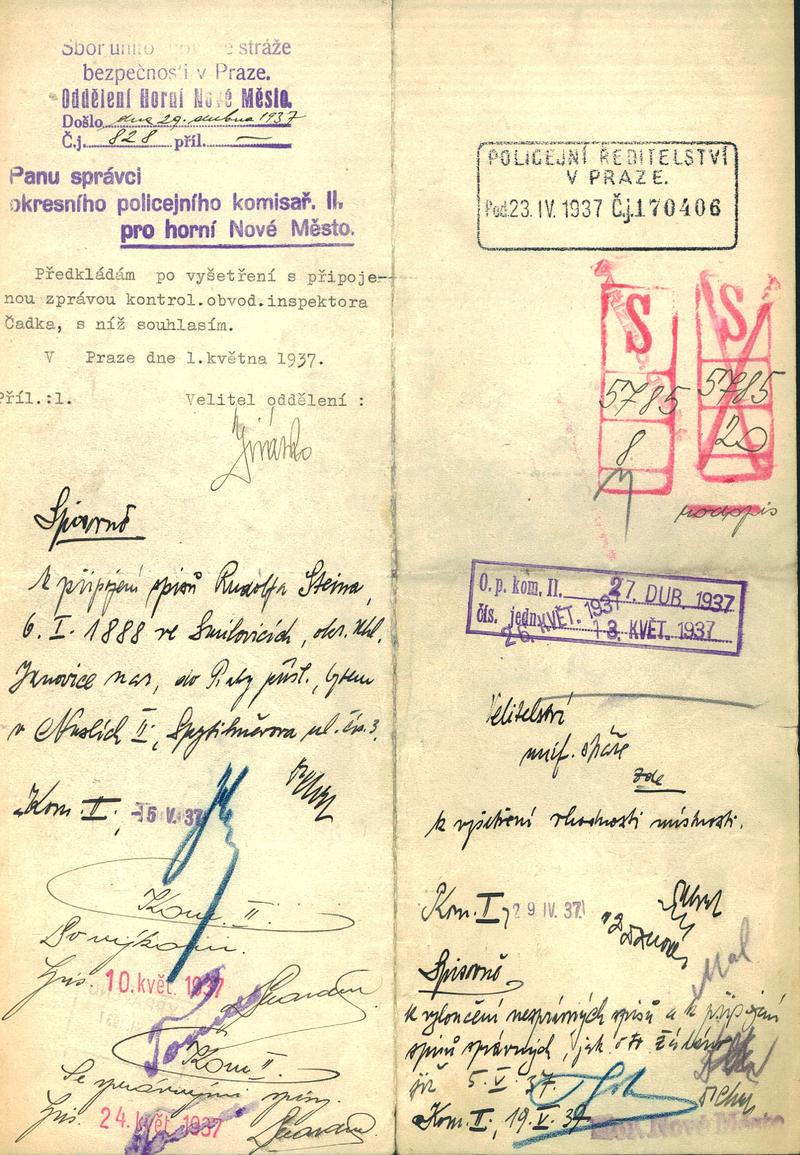 Sbor stráže
bezpečnosti v Praze.
Oddělení Horní Nové Město.
Došlo dne 29. dubna 1937
Č.j. 828 příl. —
Panu správci
okresního policejního komisař. II.
pro horní Nové Město.
Předkládám po vyšetření s připoje-
nou zprávou kontrol.obvod.inspektora
Čadka, s níž souhlasím.
V Praze dne 1.května 1937.
Příl.:1. Velitel oddělení :
Spisovně
k připojení spisů Rudolfa Steina,
6. I. 1888 ve Smilovicích, okr.
Janovice nar., do Prahy přísl., bytem
v Nuslích II, Spytihněvova ul. čís. 3.
Kom. II, -5. V. 37
Kom. II.
Po výkonu.
10. květ. 1937
Kom. II.
Se správnými spisy.
24. květ. 1937
POLICEJNÍ ŘEDITELSTVÍ
V PRAZE.
Pod. 23. IV. 1937 Č.j. 170406
S S
5785 5785
8 20
podpis
O. p. kom. II. 27. DUB. 1937
čís. jedn. 13. KVĚT. 1937
26. KVĚT. 1937
Velitelství
unif. stráže
zde
k vyšetření vhodnosti místnosti.
Kom. II, 29 IV. 37
Spisovně
k vyloučení nesprávných spisů a k připojení
spisů správných, jak
již 5. V. 37.
Kom. II, 19. V. 37
Nové Město